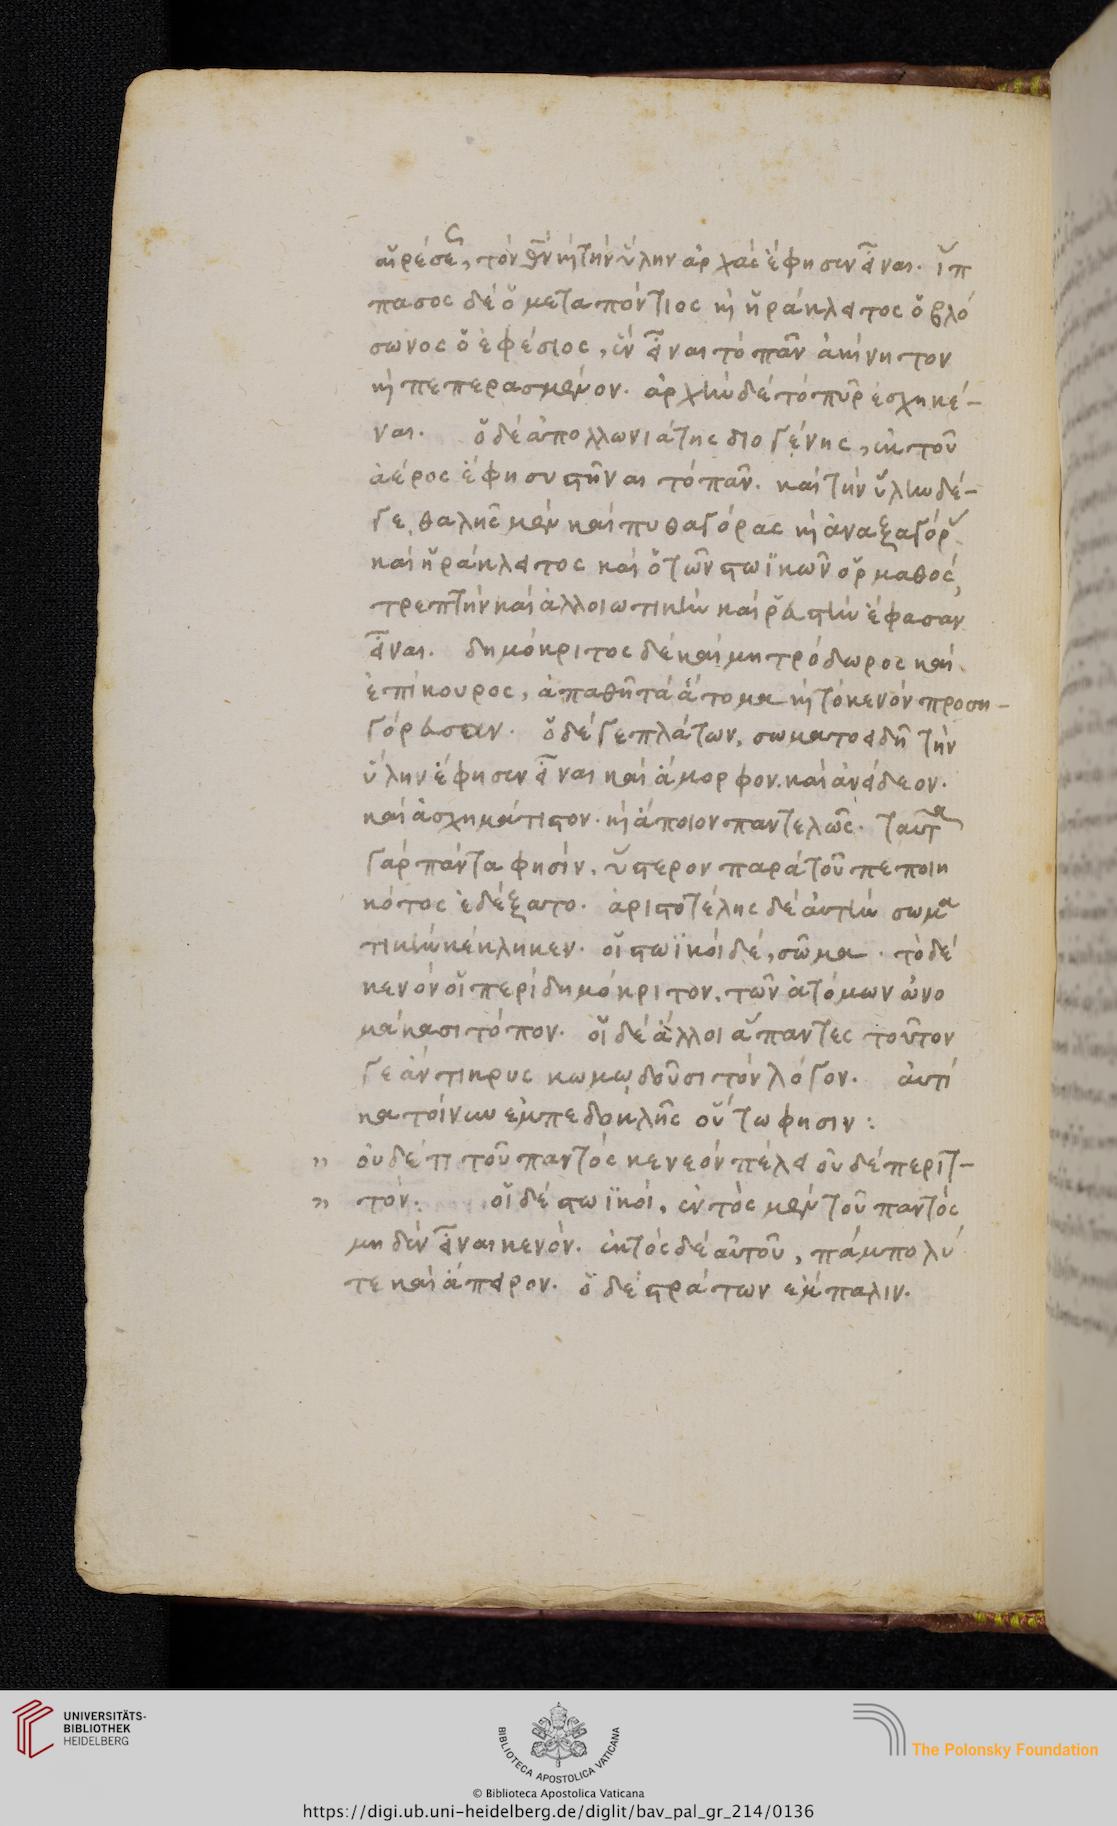 αἱρέσεως, τὸν θν̅ καὶ τὴν ὕλην ἀρχὰς ἔφησεν εἶναι. ἵπ
πασος δὲ ὁ μεταπόντιος καὶ ἡράκλειτος ὁ βλό
σωνος ὁ ἐφέσιος, ἓν εἶναι τὸ πᾶν ἀκίνητον
καὶ πεπερασμένον. ἀρχὴν δὲ τὸ πῦρ ἐσχηκέ-
ναι. ὁ δὲ ἀπολλωνιάτης διογένης, ἐκ τοῦ
ἀέρος ἔφησυστῆναι τὸ πᾶν. καὶ τὴν ὕλην δέ-
γε, θαλῆς μὲν καὶ πυθαγόρας καὶ ἀναξαγόρ
καὶ ἡράκλειτος καὶ ὁ τῶν στωϊκῶν ὁρμαθός,
τρεπτὴν καὶ ἀλλοιωτικὴν καὶ ῥευστὴν ἔφασαν
εἶναι. δημόκριτος δὲ καὶ μητρόδωρος καὶ
ἐπίκουρος, ἀπαθῆ τὰ ἄτομα καὶ τὸ κενὸν προση-
γόρευσαν. ὁ δέ γε πλάτων, σωματοειδῆ τὴν
ὕλην ἔφησεν εἶναι καὶ ἄμορφον. καὶ ἀνείδεον.
καὶ ἀσχημάτιστον. καὶ ἄποιον παντελῶς. ταῦτα
γὰρ πάντα φησίν, ὕστερον παρὰ τοῦ πεποιη
κότος ἐδέξατο. ἀριστοτέλης δὲ αὐτὴν σωμα
τικὴν κέκληκεν. οἱ στωϊκοὶ δέ, σῶμα. τὸ δὲ
κενὸν οἱ περὶ δημόκριτον, τῶν ἀτόμων ὠνο
μάκασι τόπον. οἱ δὲ ἄλλοι ἅπαντες τοῦτον
γε ἄντικρυς κωμῳδοῦσι τὸν λόγον. αὐτί
κα τοίνυν ἐμπεδοκλῆς οὕτω φησιν:
" οὐδέ τι τοῦ παντὸς κενεὸν πέλει οὐδὲ περιτ-
" τόν. οἱ δὲ στωϊκοί, ἐντὸς μὲν τοῦ παντὸς
μηδὲν εἶναι κενόν. ἐκτὸς δὲ αὐτοῦ, πάμπολύ
τε καὶ ἄπειρον. ὁ δὲ στράτων ἔμπαλιν.
UNIVERSITÄTS-
BIBLIOTHEK
HEIDELBERG
BIBLIOTECA APOSTOLICA VATICANA
The Polonsky Foundation
© Biblioteca Apostolica Vaticana
https://digi.ub.uni-heidelberg.de/diglit/bav_pal_gr_214/0136